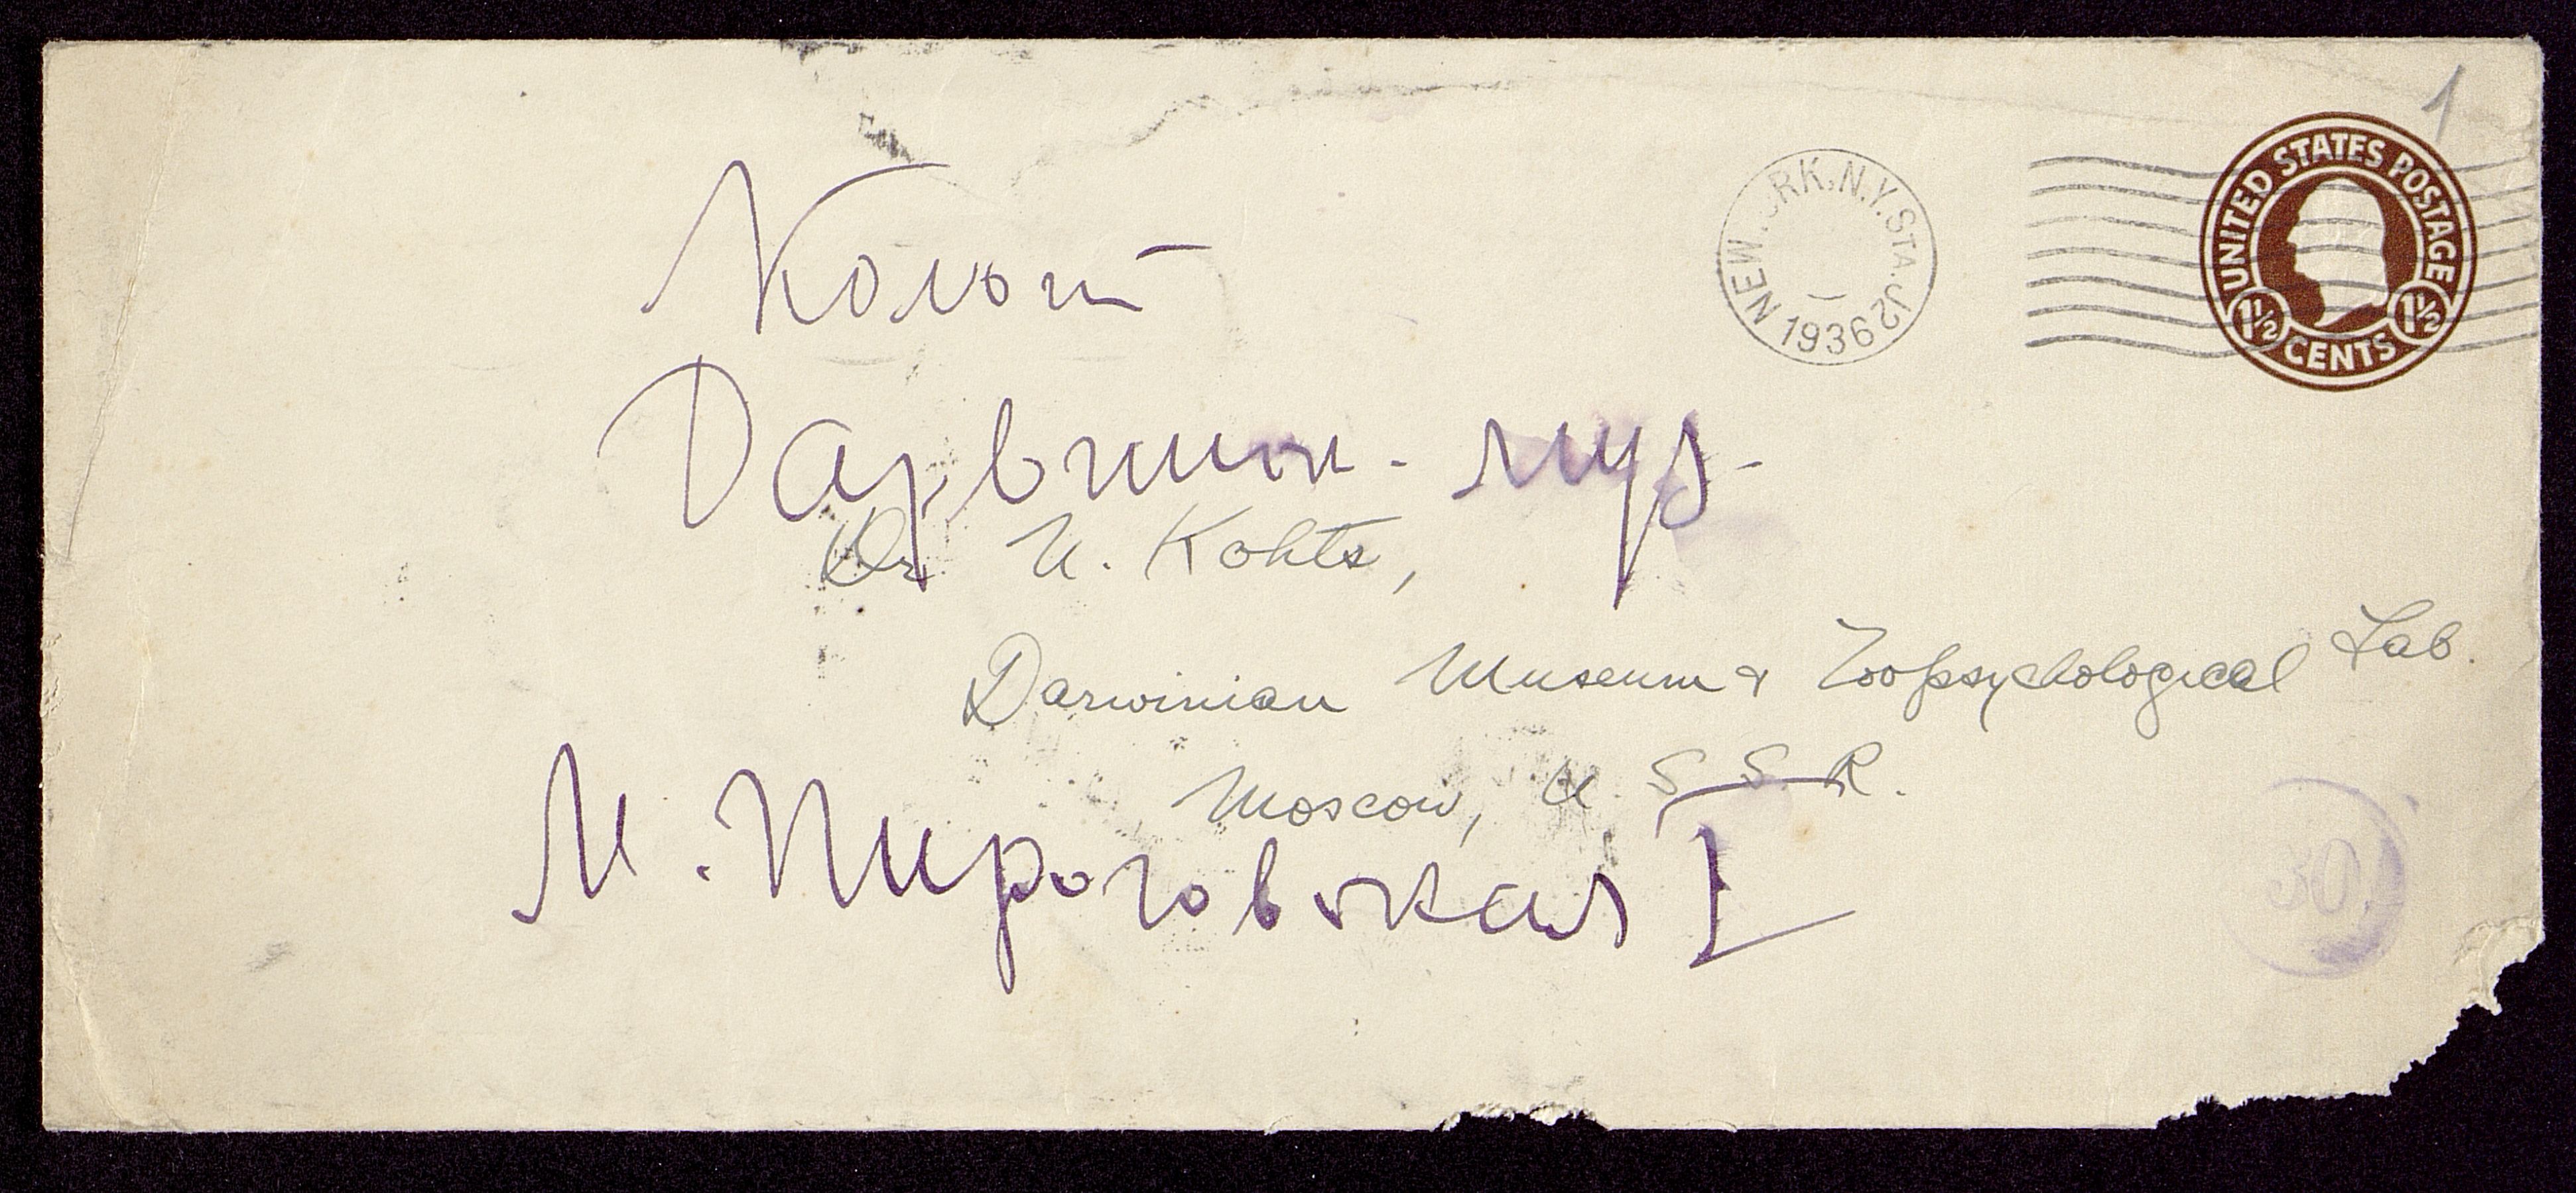 1
UNITED STATES POSTAGE
1½ 1½
CENTS
NEW YORK, N.Y. STA. J2
1936
Дарвин. муз.
Dr N. Kohts,
Darwinian Museum & Zoopsychological Lab.
Moscow, U.S.S.R.
М. Пироговская 1
30